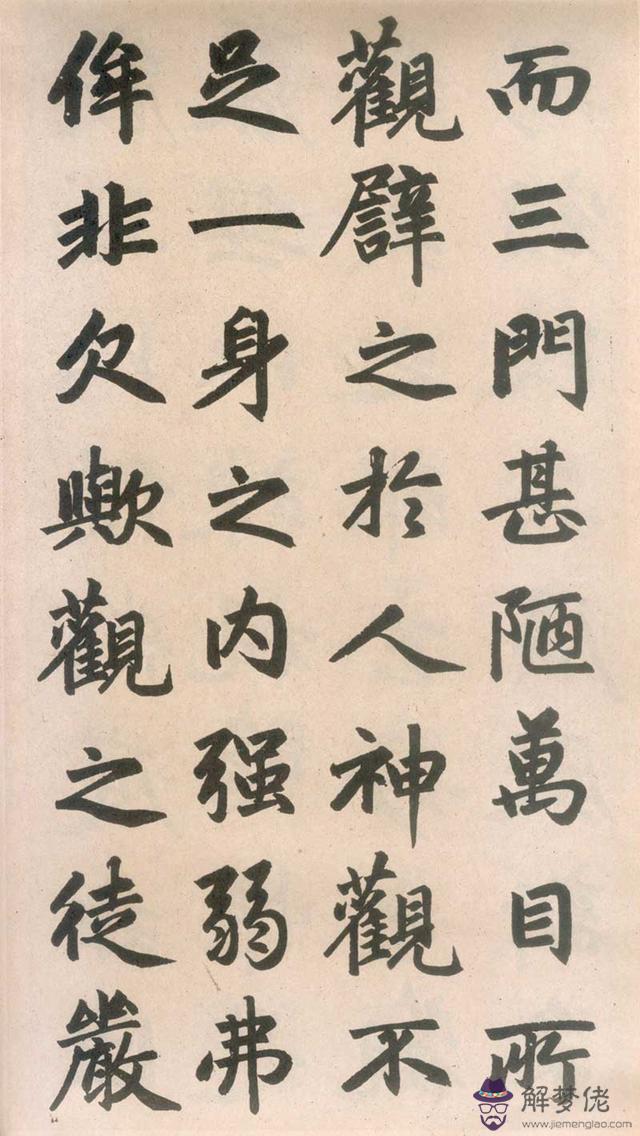 而三門甚陋萬目所
觀譬之於人神觀不
足一身之内强弱弗
侔非欠歟觀之徒嚴
解梦佬
www.jiemenglao.com